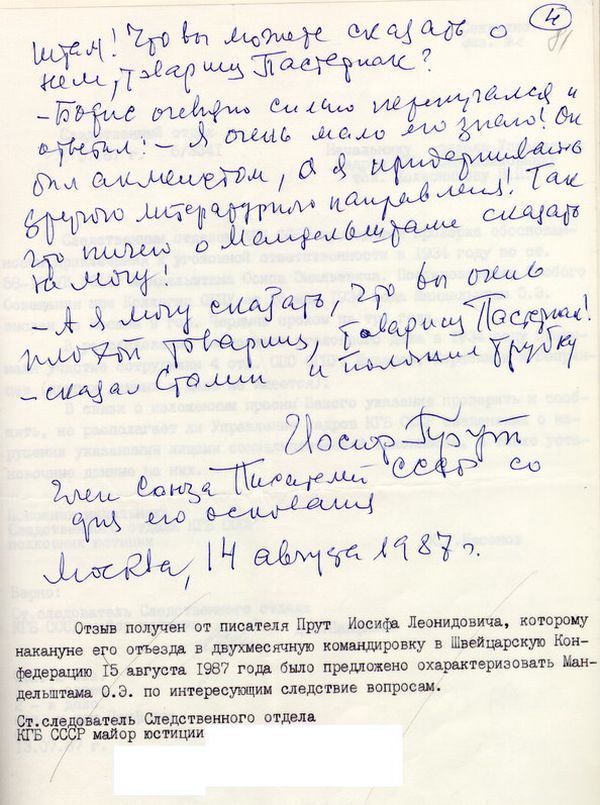 4
81
штам! Что вы можете сказать о
нем, товарищ Пастернак?
– Борис очевидно сильно перепугался и
ответил: – Я очень мало его знаю! Он
был акмеистом, а я придерживаюсь
другого литературного направления! Так
что ничего о Мандельштаме сказать
не могу!
– А я могу сказать, что вы очень
плохой товарищ, товарищ Пастернак!
– сказал Сталин и положил трубку
Иосиф Прут
член Союза Писателей СССР со
дня его основания
Москва, 14 августа 1987 г.
Отзыв получен от писателя Прут Иосифа Леонидовича, которому
накануне его отъезда в двухмесячную командировку в Швейцарскую Кон-
федерацию 15 августа 1987 года было предложено охарактеризовать Ман-
дельштама О.Э. по интересующим следствие вопросам.
Ст.следователь Следственного отдела
КГБ СССР майор юстиции